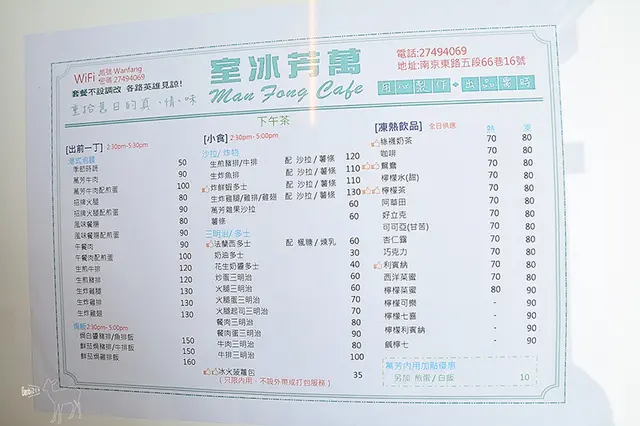 WiFi 帳號 Wanfang
密碼 27494069
套餐不設調改 各路英雄見諒!
重拾舊日的真、情、味
室冰芳萬
Man Fong Cafe
電話:27494069
地址:南京東路五段66巷16號
用心製作·出品需時
下午茶
[出前一丁] 2:30pm-5:30pm
港式泡麵
季節時蔬 50
萬芳牛肉 90
萬芳牛肉配煎蛋 100
招牌火腿 80
招牌火腿配煎蛋 90
風味餐腸 80
風味餐腸配煎蛋 90
午餐肉 90
午餐肉配煎蛋 100
生煎牛排 120
生煎豬排 120
生炸雞腿 130
生炸雞排 130
生炸雞翅 130
焗飯 2:30pm-5:00pm
焗白醬豬排/魚排飯 150
鮮茄焗豬排/牛排飯 150
鮮茄焗雞排飯 160
[小食] 2:30pm-5:00pm
沙拉/炸物
生煎豬排/牛排 配 沙拉/薯條 120
生炸魚排 配 沙拉/薯條 110
炸鮮蝦多士 配 沙拉/薯條 110
生炸雞腿/雞排/雞翅 配 沙拉/薯條 130
萬芳雜果沙拉 60
薯條 60
三明治/多士
法蘭西多士 配 楓糖/煉乳 60
奶油多士 30
花生奶醬多士 40
炒蛋三明治 60
火腿三明治 60
火腿蛋三明治 70
火腿起司三明治 70
餐肉三明治 80
餐肉蛋三明治 90
牛肉三明治 80
牛排三明治 100
冰火菠蘿包 35
(只限內用、不設外帶或打包服務)
[凍熱飲品] 全日供應 熱 凍
絲襪奶茶 70 80
咖啡 70 80
鴛鴦 70 80
檸檬水(甜) 70 80
檸檬茶 70 80
阿華田 70 80
好立克 70 80
可可亞(甘苦) 70 80
杏仁露 70 80
巧克力 70 80
利賓納 70 80
西洋菜蜜 70 80
檸檬菜蜜 80 90
檸檬可樂 - 90
檸檬七喜 - 90
檸檬利賓納 - 90
鹹檸七 - 90
萬芳內用加點優惠
另加 煎蛋/白飯 10